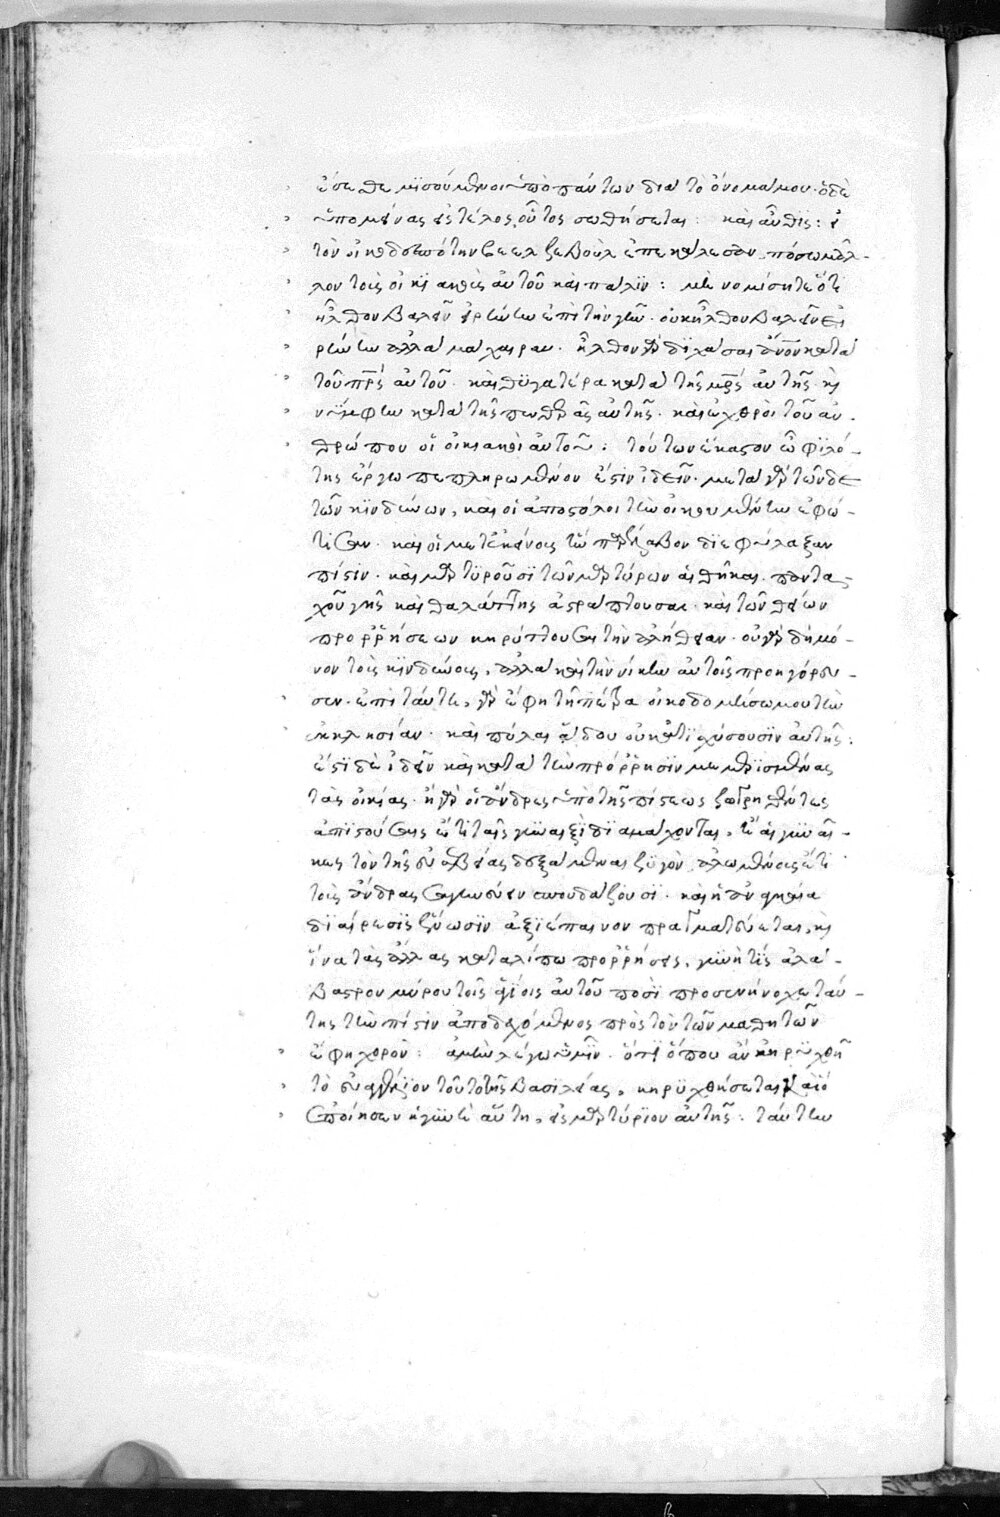 ἔσεσθε μισούμενοι ὑπὸ πάντων διὰ τὸ ὄνομά μου· ὁ δὲ
ὑπομείνας εἰς τέλος, οὗτος σωθήσεται: καὶ αὖθις: εἰ
τὸν οἰκοδεσπότην βεελζεβοὺλ ἐπεκάλεσαν, πόσω μᾶλ-
λον τοὺς οἰκιακοὺς αὐτοῦ καὶ πάλιν: μὴ νομίσητε ὅτι
ἦλθον βαλεῖν εἰρήνην ἐπὶ τὴν γῆν· οὐκ ἦλθον βαλεῖν εἰ
ρήνην ἀλλὰ μάχαιραν. ἦλθον γὰρ διχάσαι ἄνον κατὰ
τοῦ πρς αὐτοῦ· καὶ θυγατέρα κατὰ τῆς μρς αὐτῆς· καὶ
νύμφην κατὰ τῆς πενθερᾶς αὐτῆς· καὶ ἐχθροὶ τοῦ ἀν-
θρώπου οἱ οἰκιακοὶ αὐτοῦ: τούτων ἕκαστον ὦ φιλό-
της ἔργω πεπληρωμένον ἔστιν ἰδεῖν· μετὰ γὰρ τῶνδε
τῶν κινδύνων, καὶ οἱ ἀπόστολοι τὴν οἰκουμένην ἐφώ-
τισαν· καὶ οἱ μετ' ἐκείνους ἣν παρέλαβον διεφύλαξαν
πίστιν· καὶ μαρτυροῦσι τῶν μαρτύρων αἱ θῆκαι· παντα-
χοῦ γῆς καὶ θαλάττης ἀστράπτουσαι· καὶ τῶν θείων
προρρήσεων κηρύττουσαι τὴν ἀλήθειαν· οὐ γὰρ δὴ μό-
νον τοὺς κινδύνους, ἀλλὰ καὶ τὴν νίκην αὐτοῖς προηγόρευ-
σεν. ἐπὶ ταύτη, γὰρ ἔφη τῆ πέτρα οἰκοδομήσω μου τὴν
ἐκκλησίαν· καὶ πύλαι ᾅδου οὐ κατισχύσουσιν αὐτῆς:
ἔστι δὲ ἰδεῖν καὶ κατὰ τὴν πρόρρησιν μεμερισμένας
τὰς οἰκίας· ἢ γὰρ οἱ ἄνδρες ὑπὸ τῆς πίστεως ζωγρηθέντες
ἀπιστούσαις ἔτι ταῖς γυναιξὶ διαμάχονται, ἢ αἱ γυναῖ-
κες τὸν τῆς εὐσεβείας δεξάμεναι ζυγὸν, ἀλωμένους ἔτι
τοὺς ἄνδρας σαγηνεύειν σπουδάζουσι· καὶ ἡ ἀναγκαία
διαίρεσις ἕνωσιν ἀξιέπαινον πραγματεύεται, καὶ
ἵνα τὰς ἄλλας καταλίπω προρρήσεις, γυνή τις ἀλά-
βαστρον μύρου τοῖς θείοις αὐτοῦ ποσὶ προσενήνοχε ταύ-
της τὴν πίστιν ἀποδεχόμενος πρὸς τὸν τῶν μαθητῶν
ἔφη χορὸν: ἀμὴν λέγω ὑμῖν· ὅτι ὅπου ἂν κηρυχθῆ
τὸ εὐαγγέλιον τοῦτο τῆς βασιλείας, κηρυχθήσεται καὶ ὃ
ἐποίησεν ἡ γυνὴ αὕτη, εἰς μαρτύριον αὐτῆς: ταύτην